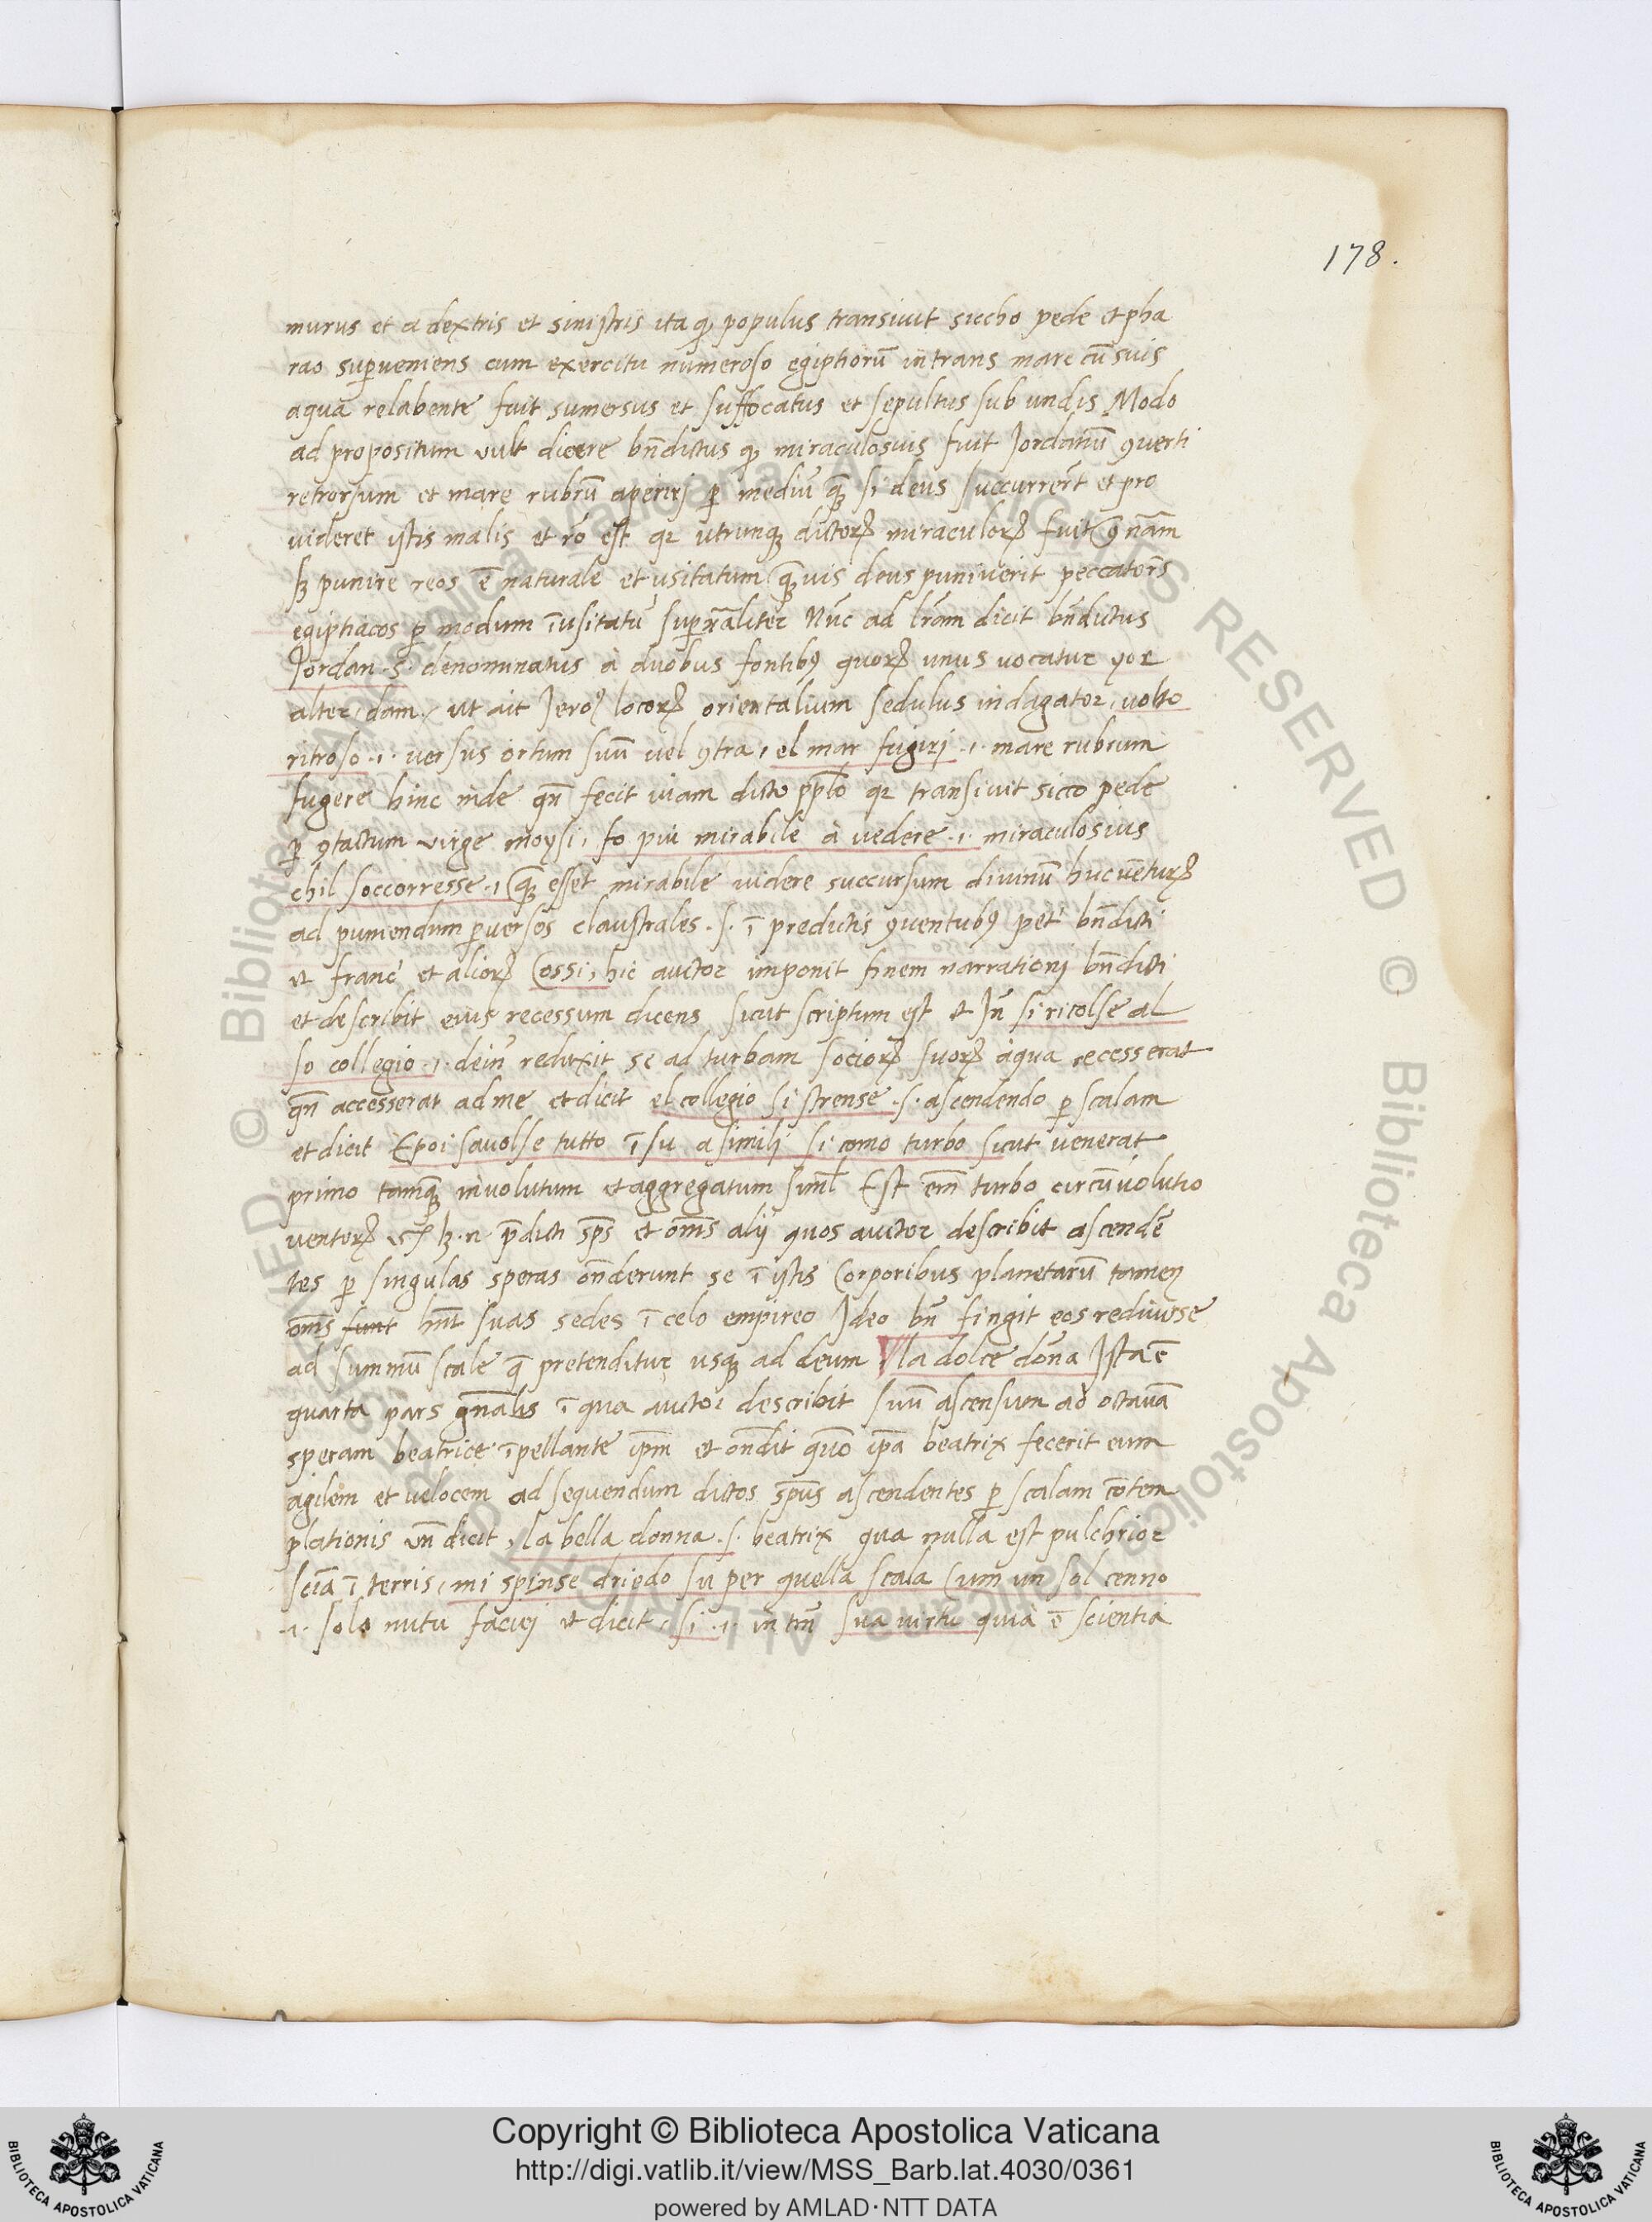 178.
murus et a dextris et sinistris ita qꝫ populus transiuit siccho pede et pha
rao suꝑueniens cum exercitu numeroso egiptiorū intrans mare cū suis
aqua relabente fuit sumersus et suffocatus et sepultus sub undis Modo
ad propositum vult dicere bn̄dictus qꝫ miraculosius fuit Jordanū ꝯuerti
retrorsum et mare rubrū aperirj ꝑ mediū qꝫ si deus succurrer̄t et pro
uideret istis malis et rō est qr utrunqꝫ dictoꝝ miraculoꝝ fuit ꝯ nam̄
sꝫ punire reos ē naturale et usitatum qꝫuis deus puniuerit peccator̄s
egiptiacos ꝑ modum īusitatū suꝑnāliter Nūc ad lr̄am dicit bn̄dictus
Jordan .s. denominatus à duobus fontibꝰ quoꝝ unus uocatur yor
alter dam. ut ait Jeroꝰ locoꝝ orientalium sedulus indagator, uolto
ritroso .i. versus ortum suū vel ꝯtra, el mar fugirj .i. mare rubrum
fugere hinc inde qn̄ fecit uiam dicto ppl̄o qr transiuit sicco pede
ꝑ ꝯtactum virge moysi, fo piu mirabile à vedere .i. miraculosius
chil soccorresse .i. qꝫ esset mirabile uidere succursum diuinū huc uēturꝝ
ad puniendum ꝑuersos claustrales .s. ī predictis ꝯuentubꝰ pet' bn̄dicti
et franc' et alioꝝ Cossi, hic auctor imponit finem narrationj bn̄dicti
et describit eius recessum dicens sicut scriptum est et Jn̄ si ricolse al
so collegio .i. dein̄ reduxit se ad turbam socioꝝ suoꝝ à qua recesserat
qn̄ accesserat ad me et dicit el collegio si strense .s. ascendendo ꝑ scalam
et dicit E poi savolse tutto ī su a similj si como turbo sicut venerat
primo tamqꝫ inuolutum et aggregatum siml̄ Est em̄ turbo circūuolutio
uentoꝝ hꝫ .n. p̄dicti sp̄s et om̄s alij quos auctor describit ascendē
tes ꝑ singulas speras on̄derunt se ī istis Corporibus planetarū tamen
om̄s sunt hn̄t suas sedes ī celo empireo Jdeo bn̄ fingit eos rediuisse
ad summū scale q̄ pretenditur usqꝫ ad deum ¶ la dolce don̄a Jsta ē
quarta pars gn̄alis ī qua auctor describit suū ascensum ad octauā
speram beatrice īpellante ip̄m et on̄dit quō ip̄a beatrix fecerit eum
agilem et velocem ad sequendum dictos sp̄us ascendentes ꝑ scalam cōtem
plationis vn̄ dicit, la bella donna .s. beatrix qua nulla est pulchrior
scīa ī terris, mi spinse driedo su per quella scala Cum un sol cenno
.i. solo nutu faciej et dicit, si .i. in tm̄ sua uirtu quia ē scientia
Copyright © Biblioteca Apostolica Vaticana
http://digi.vatlib.it/view/MSS_Barb.lat.4030/0361
powered by AMLAD·NTT DATA